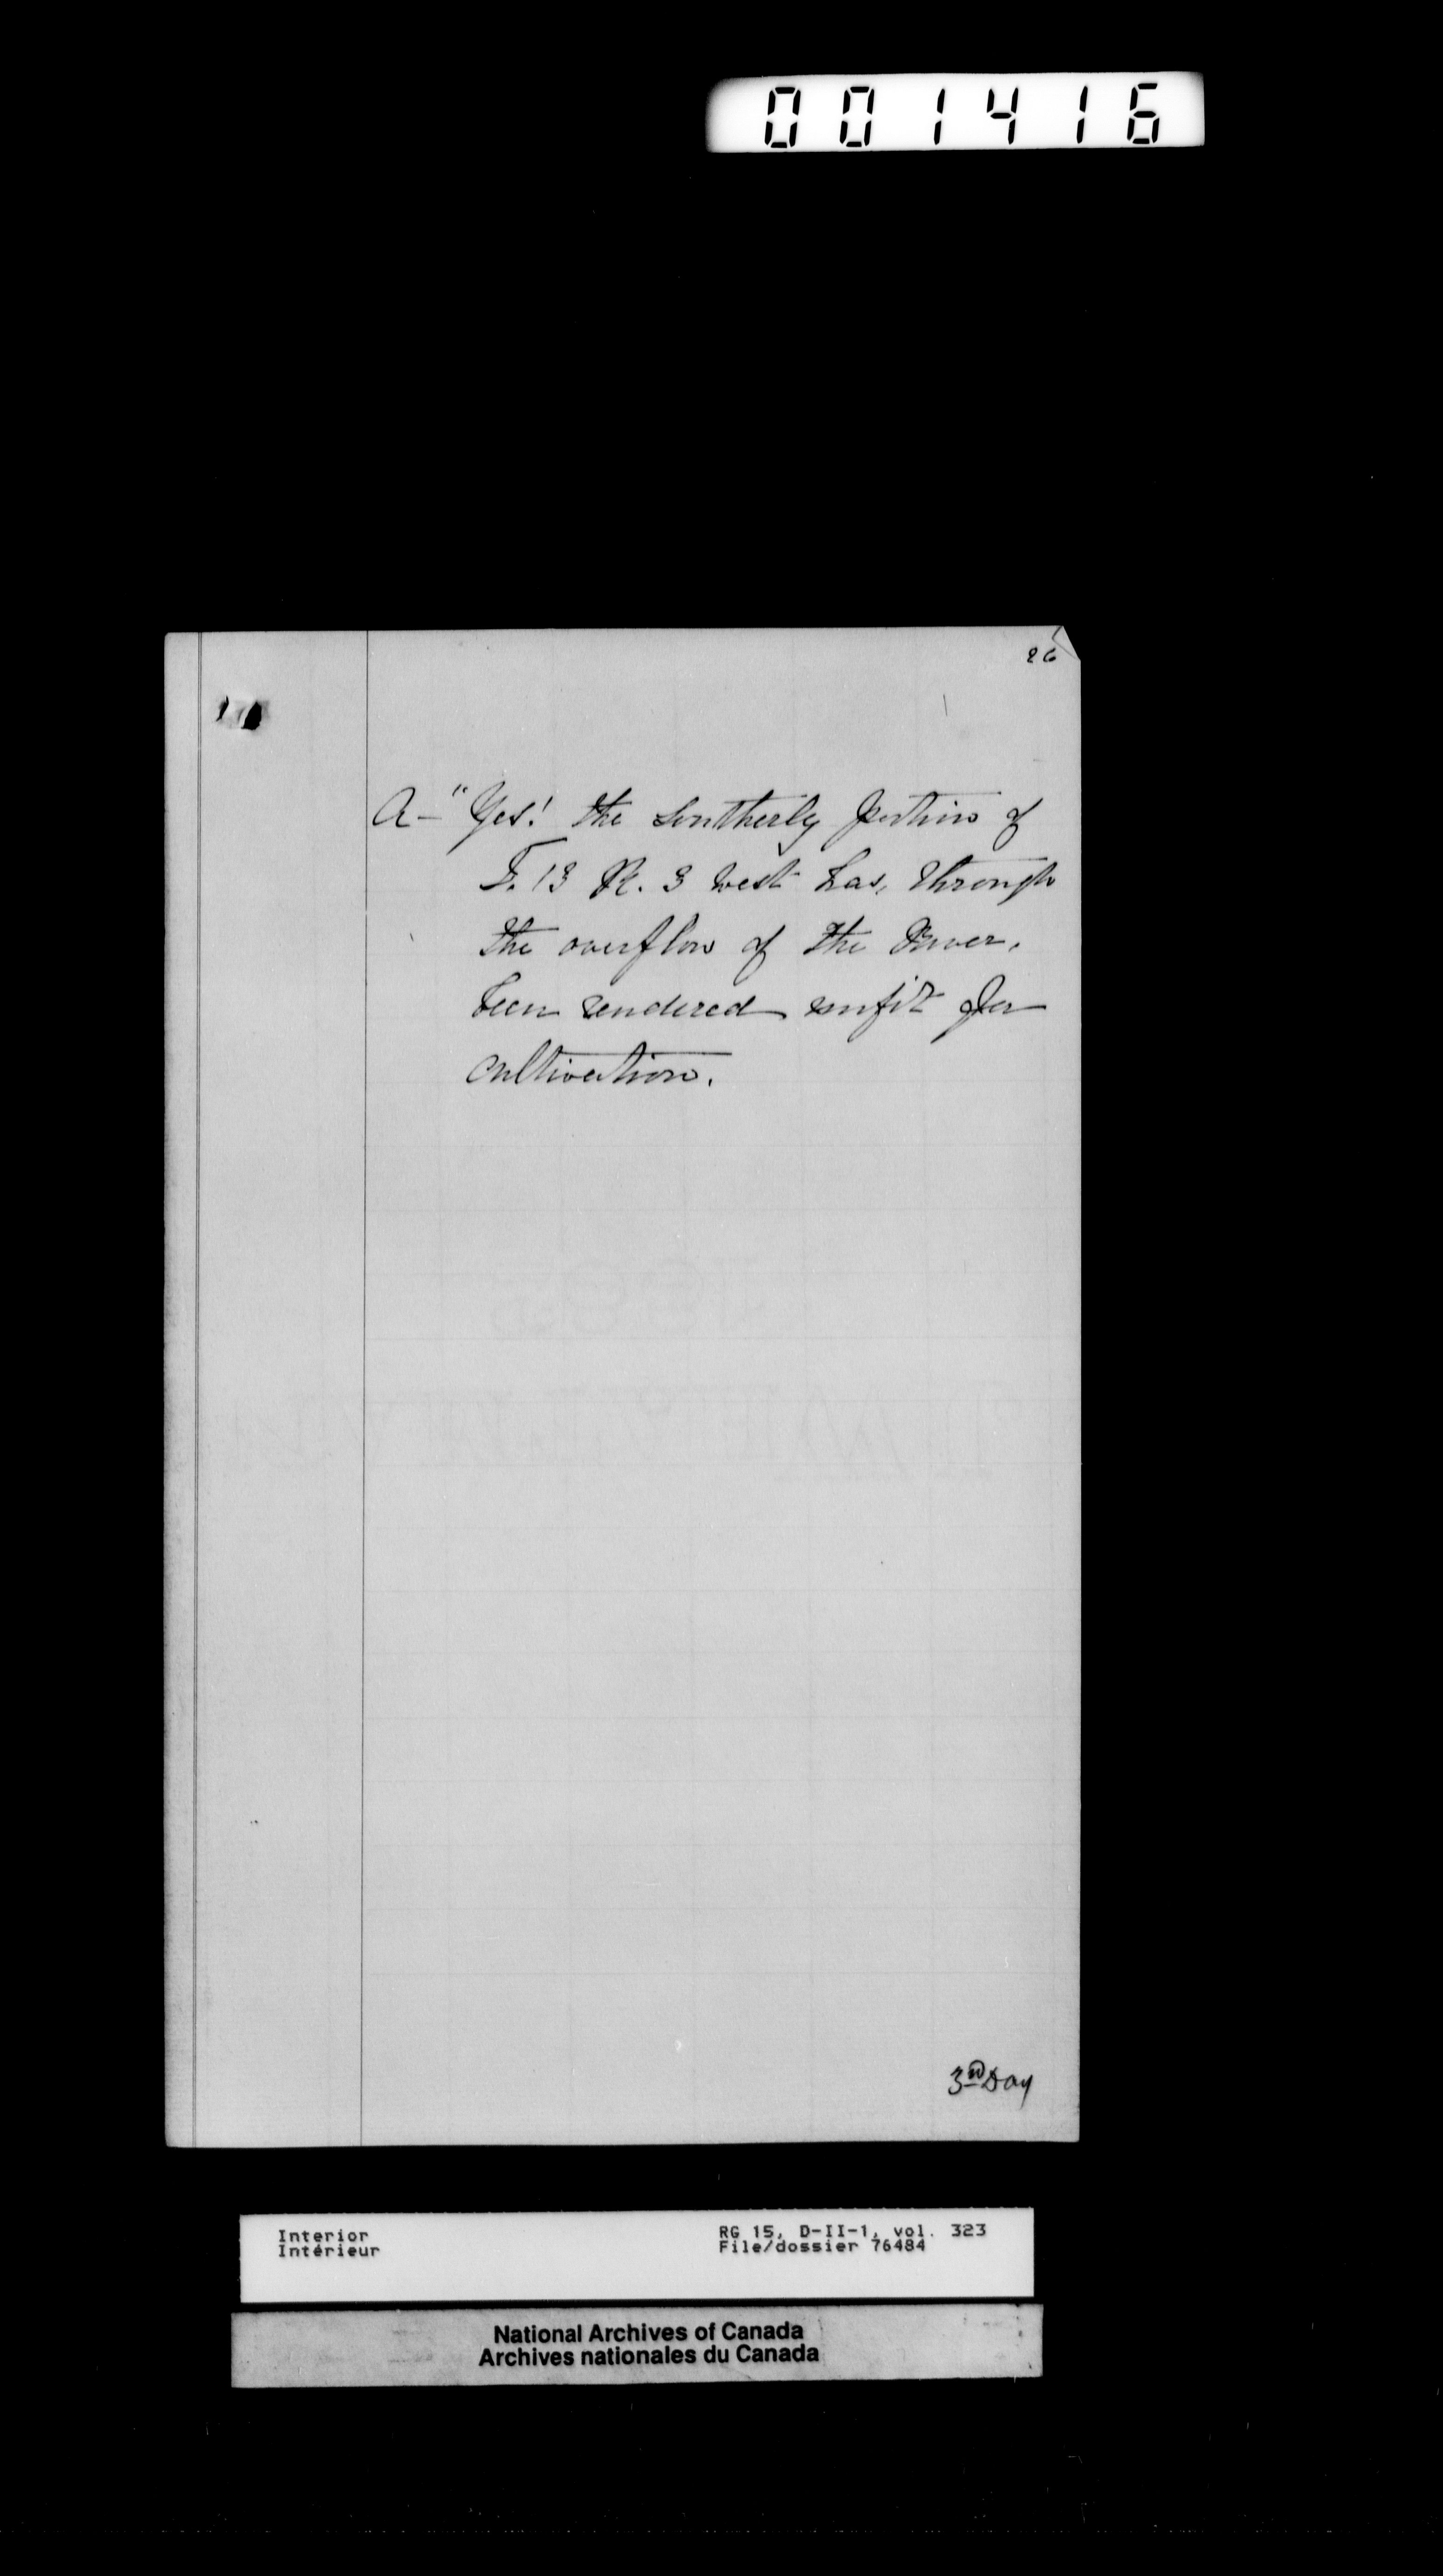 001416
26
A - "Yes! the Southerly portion of
T. 13 R. 3 west has, through
the overflow of the River,
been rendered unfit for
cultivation.
3rd Day
Interior
Intérieur
RG 15, D-II-1, vol. 323
File/dossier 76484
National Archives of Canada
Archives nationales du Canada